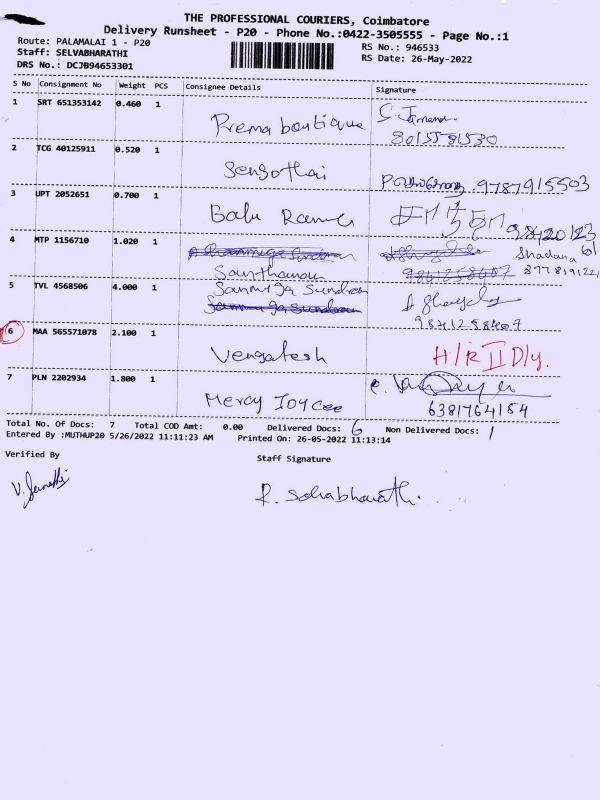 THE PROFESSIONAL COURIERS, Coimbatore
Delivery Runsheet - P20 - Phone No.:0422-3505555 - Page No.:1
Route: PALAMALAI 1 - P20
RS No.: 946533
Staff: SELVABHARATHI
RS Date: 26-May-2022
DRS No.: DCJB94653301
S No Consignment No Weight PCS Consignee Details Signature
1 SRT 651353142 0.460 1 Prema boutique
8015581530
2 TCG 40125911 0.520 1 Sengothai 9787915503
3 UPT 2052651 0.700 1 Balu
4 MTP 1156710 1.020 1
Shadana
9841258407
5 TVL 4568506 4.000 1 Sanmuga Sundram
9841258407
6 MAA 565571078 2.100 1 Vengatesh H/R II Dly.
7 PLN 2202934 1.800 1 Mercy Joycee
6381764154
Total No. Of Docs: 7 Total COD Amt: 0.00 Delivered Docs: 6 Non Delivered Docs: 1
Entered By :MUTHUP20 5/26/2022 11:11:23 AM Printed On: 26-05-2022 11:13:14
Verified By
Staff Signature